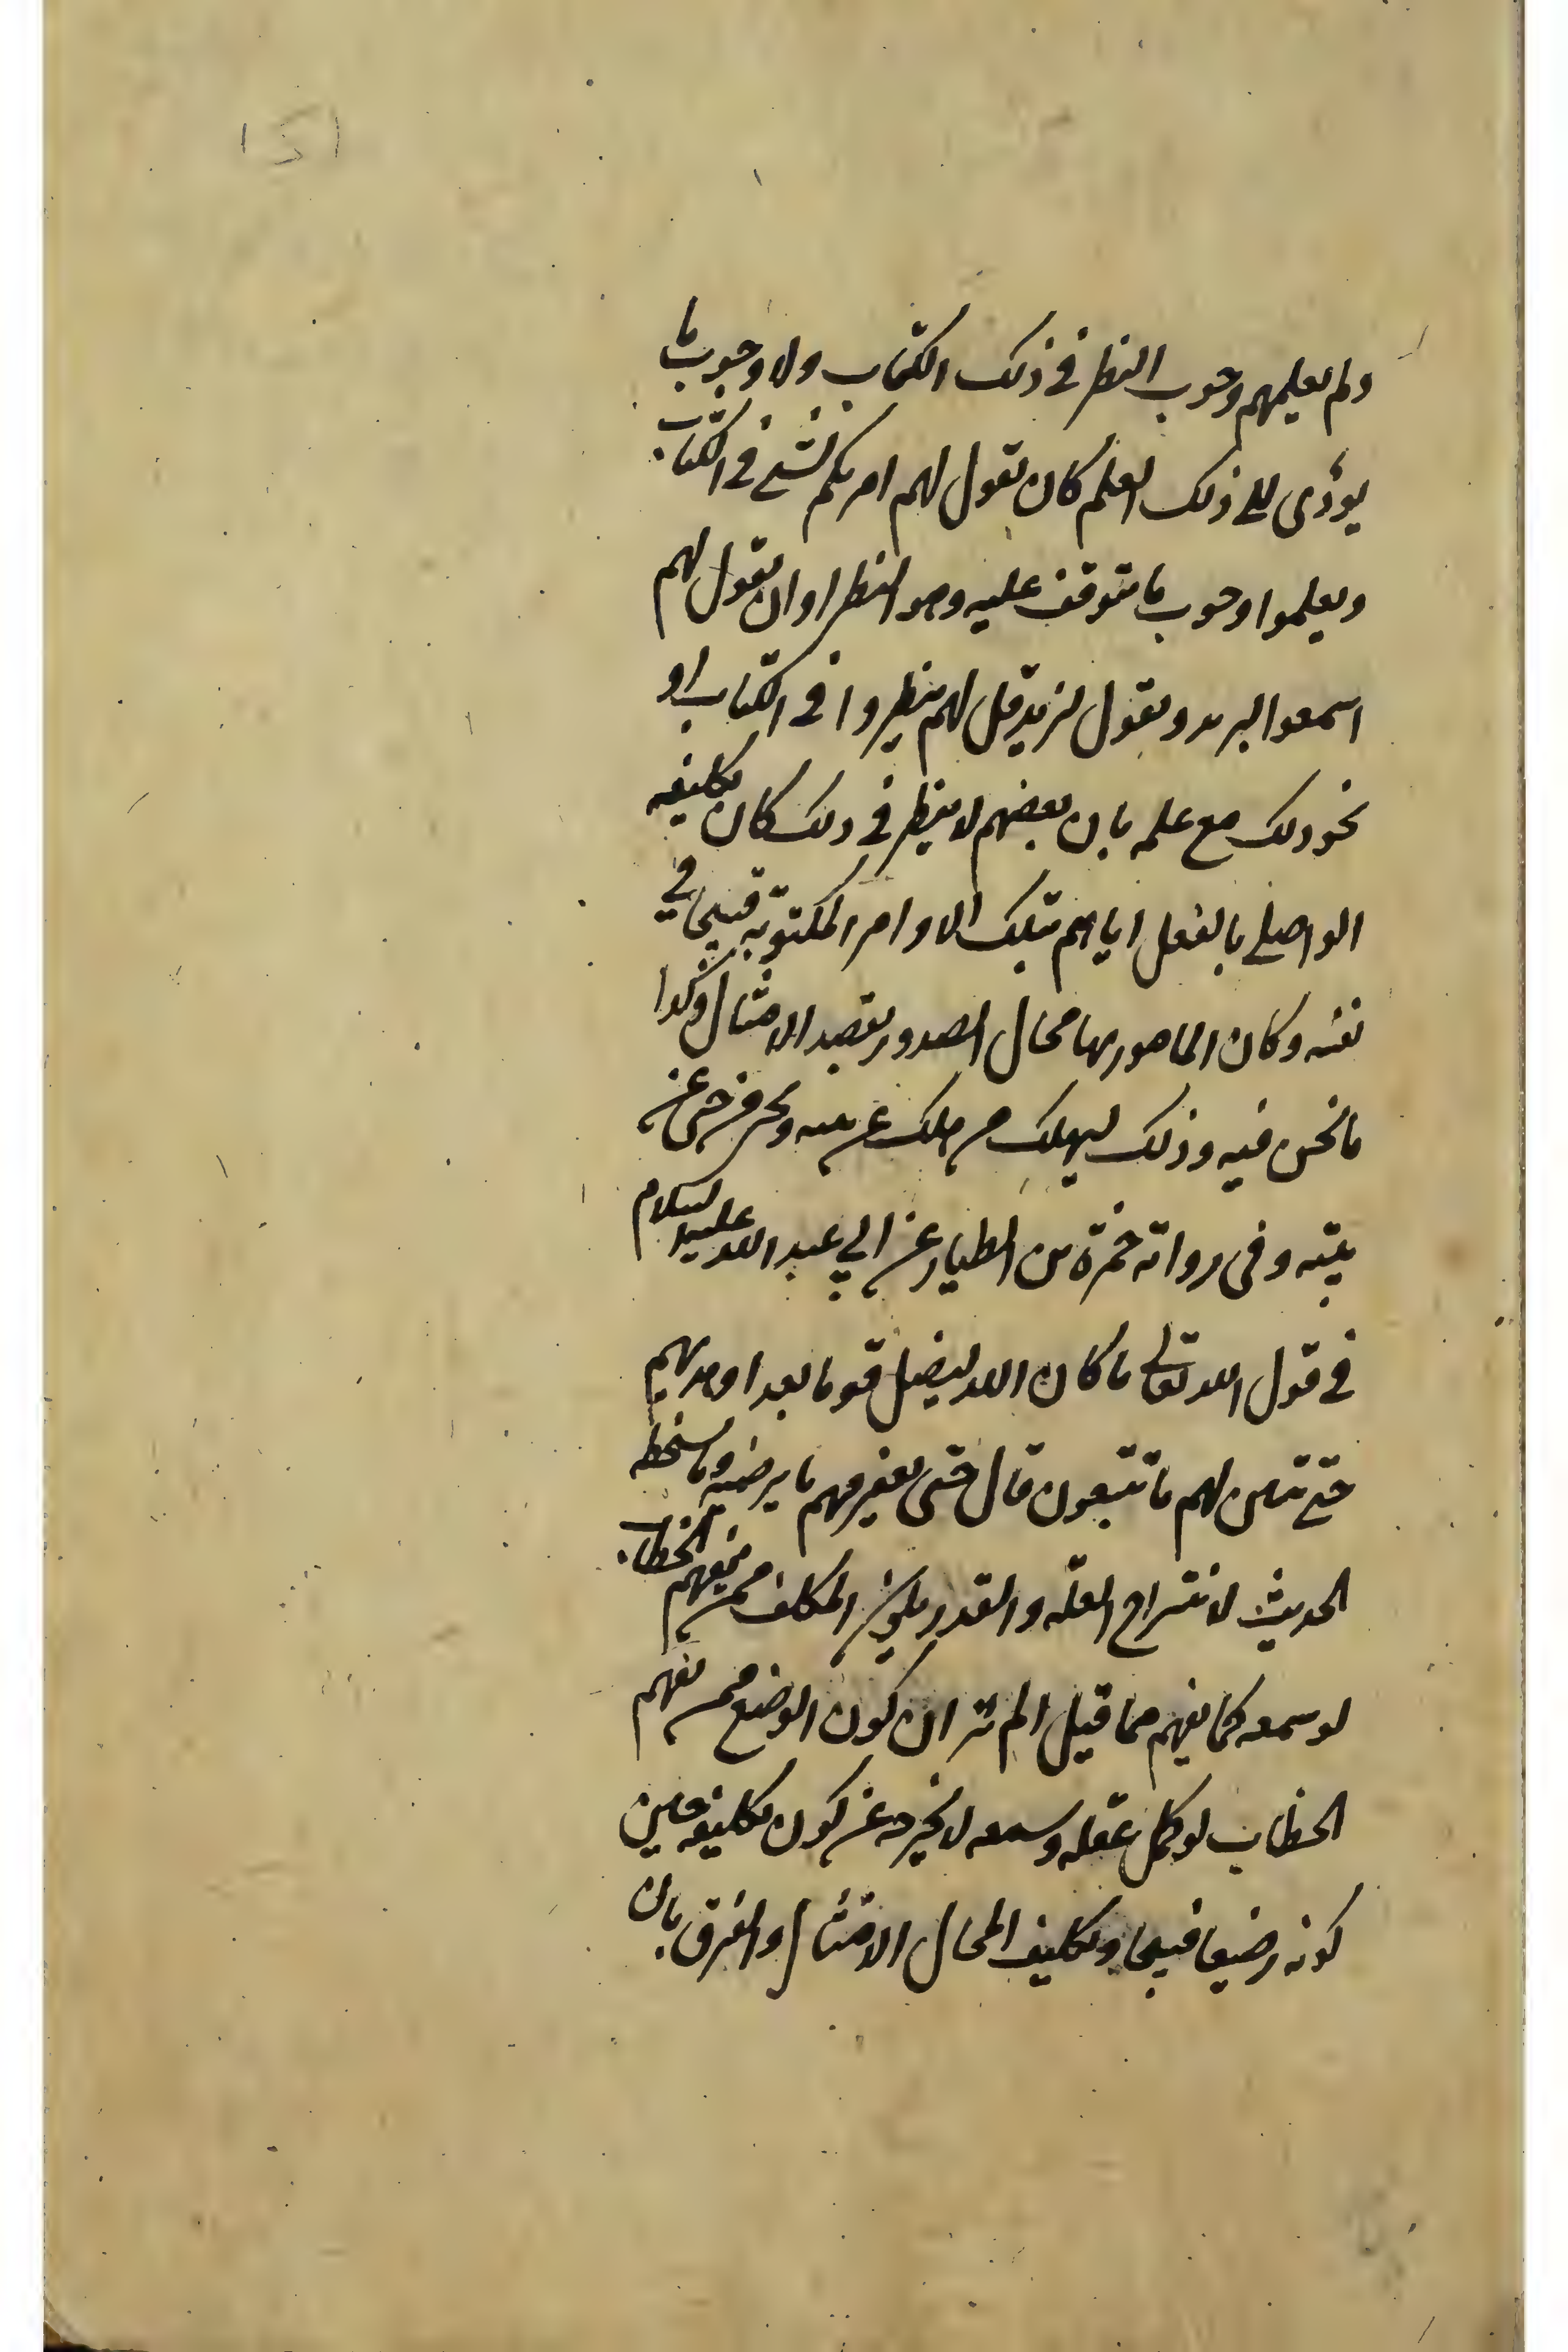 ولم يعلمهم وجوب النظر في ذلك الكتاب ولا وجوب ما
يؤدى الى ذلك العلم كان تقول لهم امرتكم بشئ في الكتاب
ويعلموا وجوب ما يتوقف عليه وهو النظر او ان يقول لهم
اسمعوا ويقول لزيد قل لهم ينظروا في الكتاب او
نحو ذلك مع علمه بان بعضهم لا ينظر في ذلك كان تكليفه
الواصلي بالفعل اياهم بتلك الاوامر المكتوبة قبيحا في
نفسه وكان المامور بها محال الصدور بقصد الامتثال وكذا
ما نحن فيه وذلك ليهلك من هلك عن بينه ويحيى من حى عن
بينه وفى رواية حمزة بن الطيار عن ابي عبد الله عليه السلام
في قول الله تعالى ما كان الله ليضل قوما بعد اذ هديهم
حتى يتبين لهم ما يتقون قال حتى يعرفهم ما يرضيه وما يسخطه
الحديث لا العقله والقدر المكلف ممن يفهم الخطاب
لو سمعه كما يفهم مما قيل الم تر ان كون الرضيع ممن يفهم
الخطاب لو كمل عقله وسمعه لا يخرجه عن كون تكليفه حين
كونه رضيعا قبيحا وتكليف المحال الامتثال والفرق بان